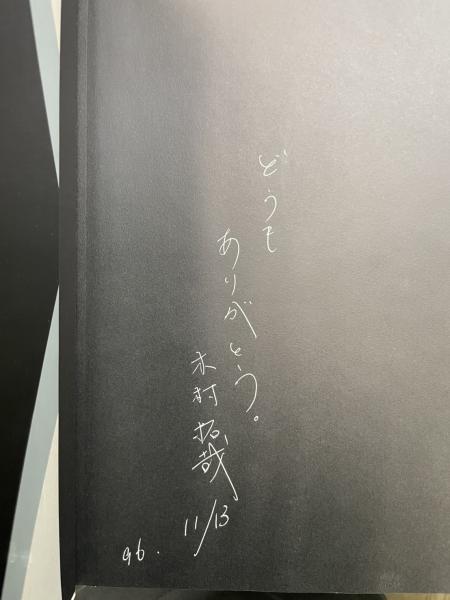 どうも
ありがとう。
木村拓哉
96. 11/13